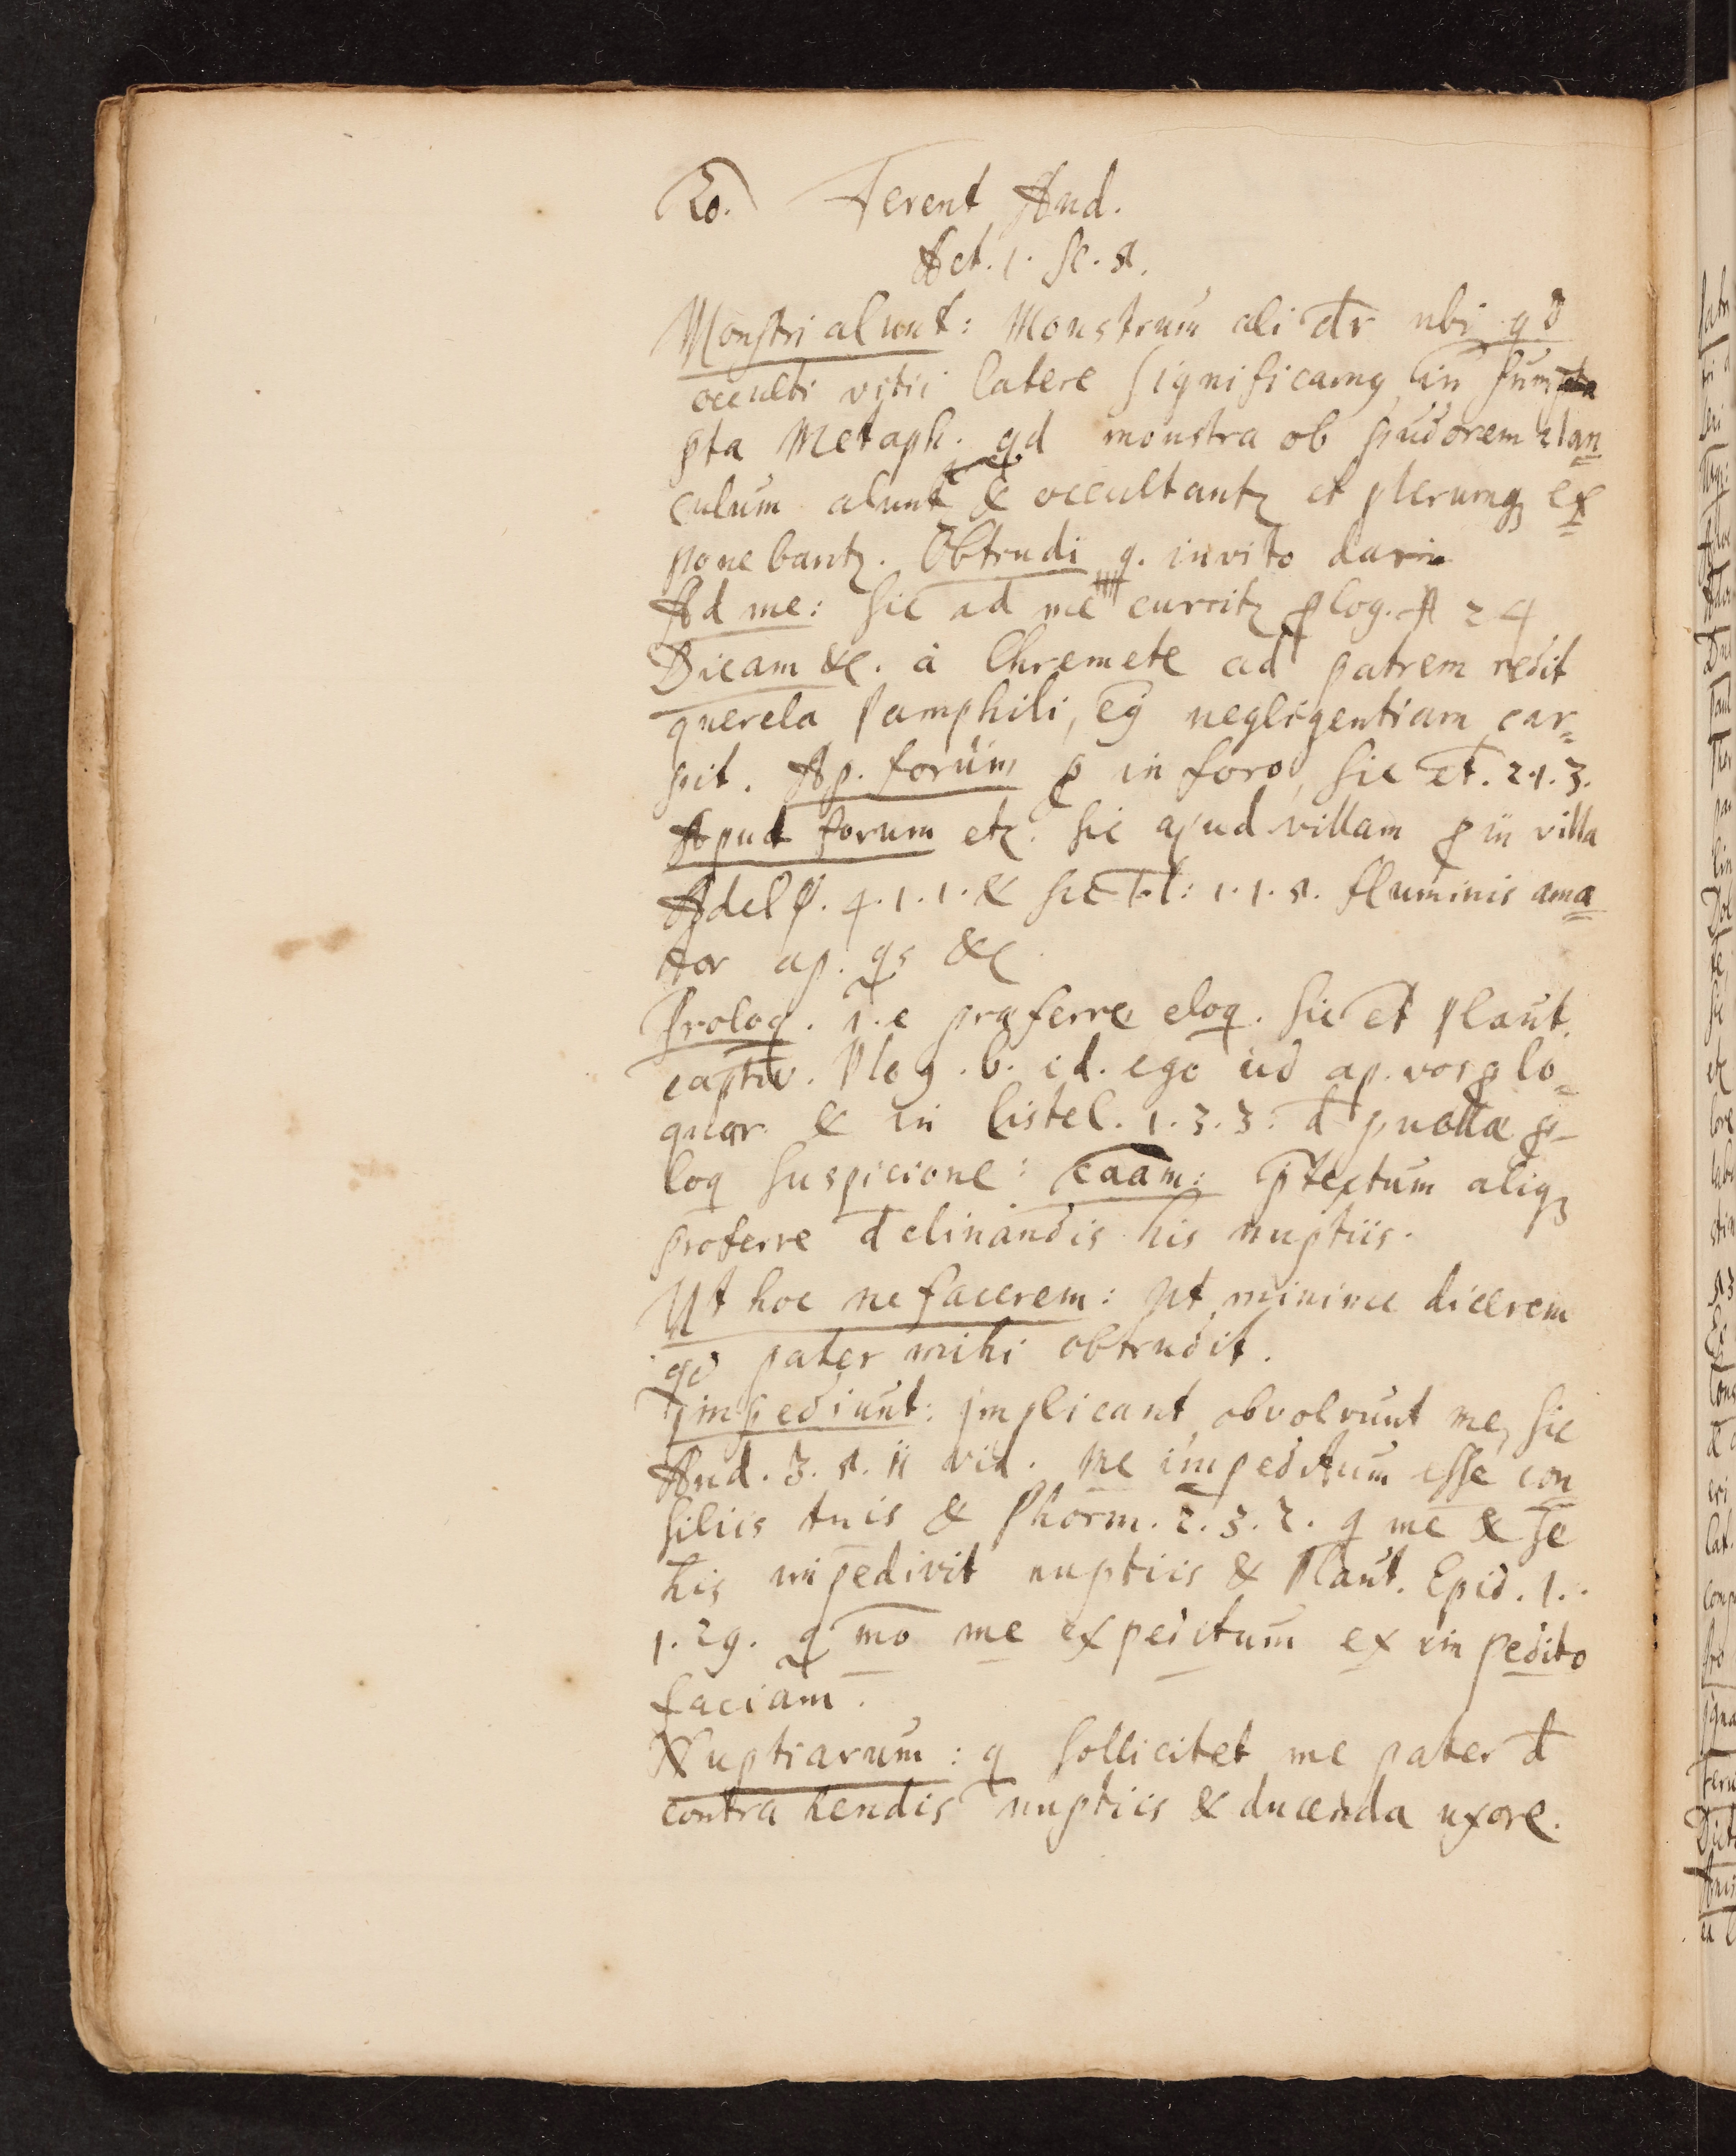 20. Terent And.
Act. 1. Sc. 5.
Monstri alunt: Monstrum ali dr ubi qd
occulti vitii latere significamq, in sum
pta Metaph. qd monstra ob pudorem clan
culum alunt & occultantz et plerumq ex
ponebantz. Obtrudi q. invito dari
Ad me: sic ad me curritz plog. A 24
Dicam &c. à Chremete ad patrem redit
querela Pamphili, ejq negligentiam car
pit. Ap. forum p in foro, sic et. 2.1.3.
Apud forum etz. sic apud villam p in villa
Adelp. 4.1.1. & sic Tl: 1.1.5. fluminis ama
tor ap. qs &c
Proloq. i.e praferre eloq. sic et Plaut.
captiv. Plog. 6. id. ego ud ap. vos plo
quar & in Cistel. 1.3.3: d puella p
loq suspicione: caam: ptextum aliq
proferre d clinandis his nuptiis.
Ut hoc ne facerem: ut minime dicerem
qd pater mihi obtrudit.
impediunt: implicant obvolvunt me, sic
And. 3.5.11 vid. me impeditum esse con
siliis tuis & Phorm. 2.3.2. q me & se
his impedivit nuptiis & Plaut. Epid. 1.
1.29. q mo me expeditum ex impedito
faciam.
Nuptiarum: q sollicitet me pater d
contrahendis nuptiis & ducenda uxore.